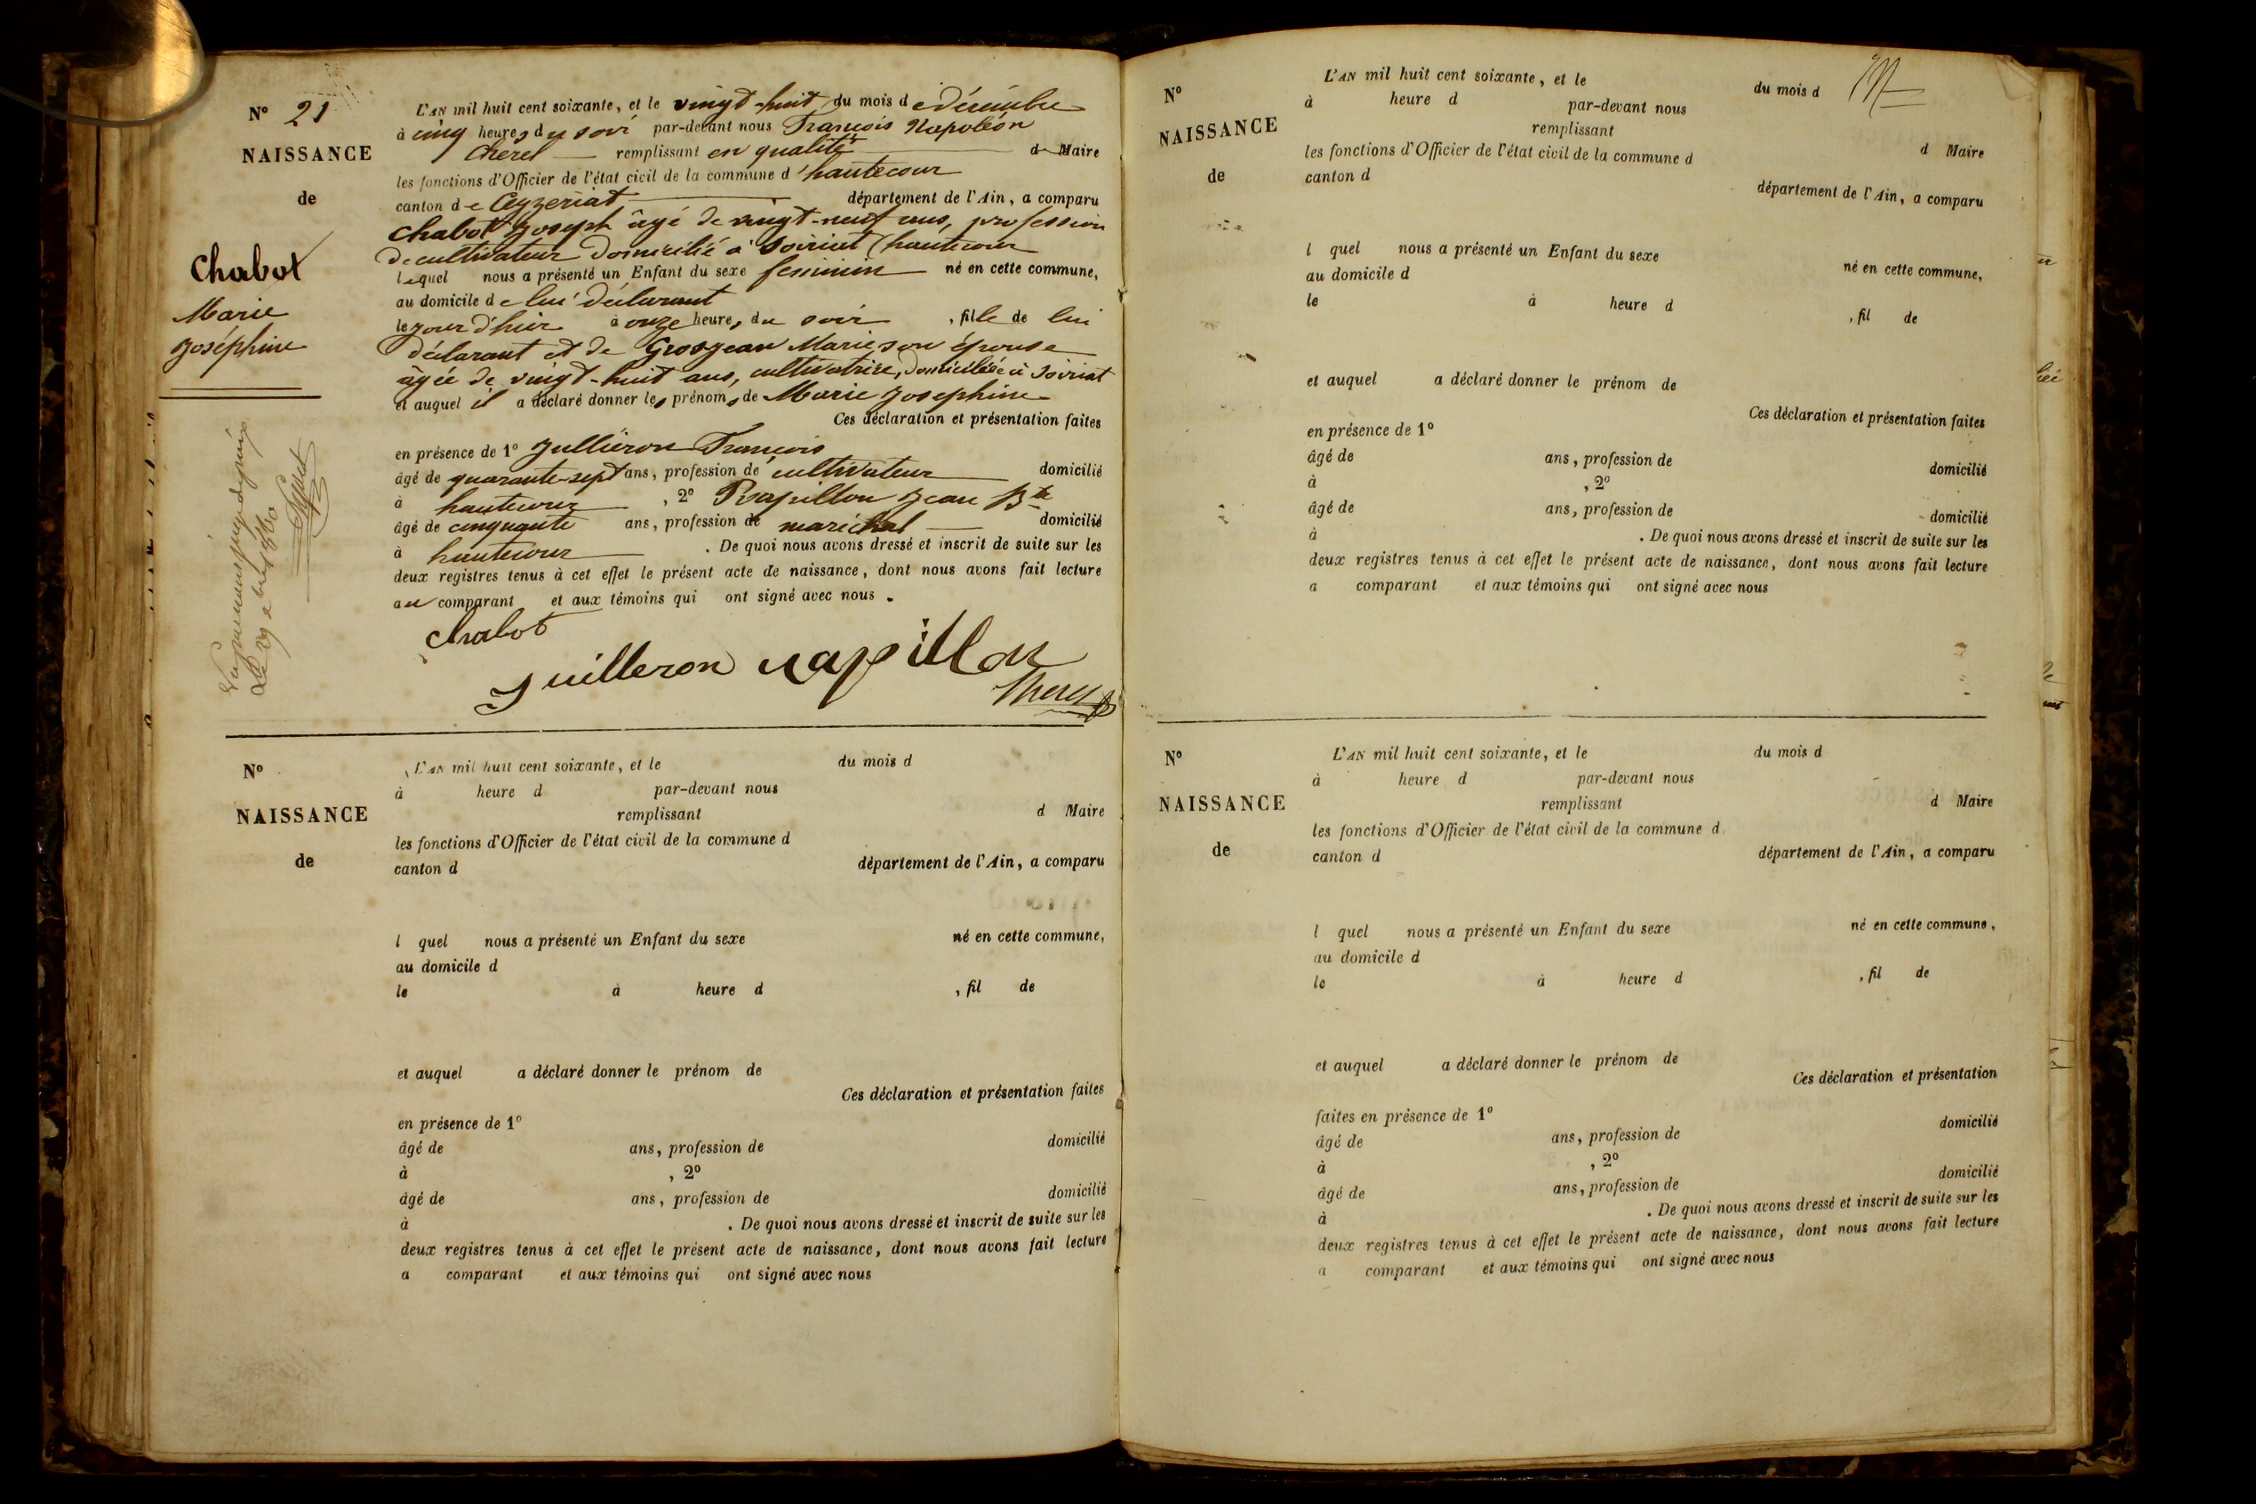 N° 21
NAISSANCE
de
Chabot
Marie
Joséphine
L'AN mil huit cent soixante, et le vingt-huit du mois de décembre
à cinq heures du soir par-devant nous François Napoléon
Cherel remplissant en qualité de Maire
les fonctions d'Officier de l'état civil de la commune d'hautecour
canton de Ceyzeriat département de l'Ain, a comparu
Chabot Joseph âgé de vingt-neuf ans, profession
de cultivateur domicilié à Soiriat (hautecour
lequel nous a présenté un Enfant du sexe feminin né en cette commune,
au domicile de lui déclarant
le jour d'hier à onze heures du soir , fille de lui
déclarant et de Grosjean Marie son épouse
âgée de vingt-huit ans, cultivatrice, domiciliée à Soiriat
et auquel il a déclaré donner les prénoms de Marie Josephine
Ces déclaration et présentation faites
en présence de 1° Jullieron François
âgé de quarante-sept ans, profession de cultivateur domicilié
à hautecour , 2° Rapillon Jean Bte
âgé de cinquante ans, profession de maréchal domicilié
à hautecour . De quoi nous avons dressé et inscrit de suite sur les
deux registres tenus à cet effet le présent acte de naissance, dont nous avons fait lecture
au comparant et aux témoins qui ont signé avec nous .
chabot
Juilleron rapillon
Cherel
N°
NAISSANCE
de
L'AN mil huit cent soixante, et le du mois d
à heure d par-devant nous
remplissant d Maire
les fonctions d'Officier de l'état civil de la commune d
canton d département de l'Ain, a comparu
l quel nous a présenté un Enfant du sexe né en cette commune,
au domicile d
le à heure d , fil de
et auquel a déclaré donner le prénom de
Ces déclaration et présentation faites
en présence de 1°
âgé de ans, profession de domicilié
à , 2°
âgé de ans, profession de domicilié
à . De quoi nous avons dressé et inscrit de suite sur les
deux registres tenus à cet effet le présent acte de naissance, dont nous avons fait lecture
a comparant et aux témoins qui ont signé avec nous
N°
NAISSANCE
de
L'AN mil huit cent soixante, et le du mois d
à heure d par-devant nous
remplissant d Maire
les fonctions d'Officier de l'état civil de la commune d
canton d département de l'Ain, a comparu
l quel nous a présenté un Enfant du sexe né en cette commune,
au domicile d
le à heure d , fil de
et auquel a déclaré donner le prénom de
Ces déclaration et présentation faites
en présence de 1°
âgé de ans, profession de domicilié
à , 2°
âgé de ans, profession de domicilié
à . De quoi nous avons dressé et inscrit de suite sur les
deux registres tenus à cet effet le présent acte de naissance, dont nous avons fait lecture
a comparant et aux témoins qui ont signé avec nous
N°
NAISSANCE
de
L'AN mil huit cent soixante, et le du mois d
à heure d par-devant nous
remplissant d Maire
les fonctions d'Officier de l'état civil de la commune d
canton d département de l'Ain, a comparu
l quel nous a présenté un Enfant du sexe né en cette commune,
au domicile d
le à heure d , fil de
et auquel a déclaré donner le prénom de
Ces déclaration et présentation
faites en présence de 1°
âgé de ans, profession de domicilié
à , 2°
âgé de ans, profession de domicilié
à . De quoi nous avons dressé et inscrit de suite sur les
deux registres tenus à cet effet le présent acte de naissance, dont nous avons fait lecture
a comparant et aux témoins qui ont signé avec nous